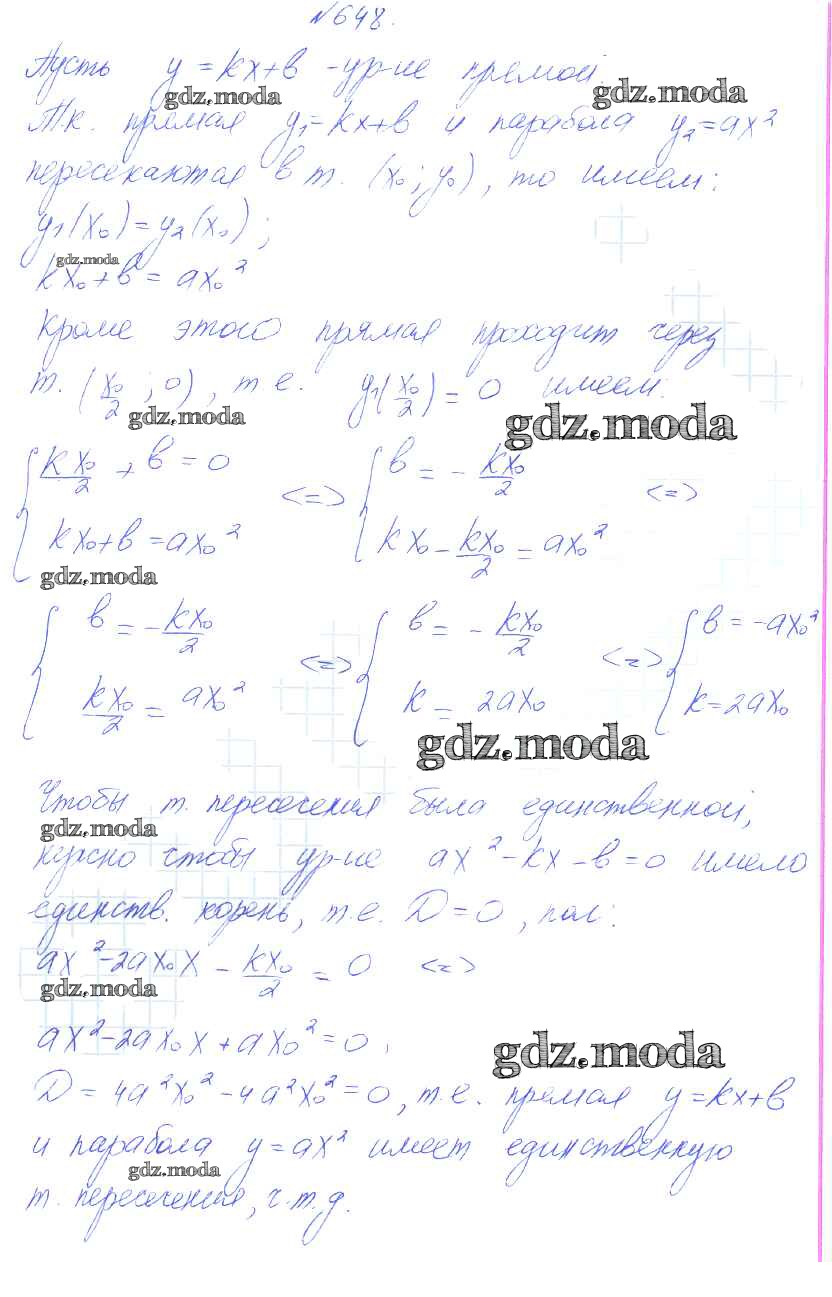 №648.
Пусть y = kx+b - ур-ие прямой.
gdz.moda
gdz.moda
Т.к. прямая y₁=kx+b и парабола y₂=ax²
пересекаются в т. (x₀; y₀), то имеем:
y₁(x₀)=y₂(x₀);
gdz.moda
kx₀+b = ax₀²
Кроме этого прямая проходит через
т. (x₀/2; 0), т.е. y₁(x₀/2) = 0 имеем:
gdz.moda
gdz.moda
{ kx₀/2 + b = 0 <=> { b = - kx₀/2 <=>
kx₀+b = ax₀² kx₀ - kx₀/2 = ax₀²
gdz.moda
{ b = - kx₀/2 <=> { b = - kx₀/2 <=> { b = -ax₀²
kx₀/2 = ax₀² k = 2ax₀ k = 2ax₀
gdz.moda
Чтобы т. пересечения была единственной,
gdz.moda
нужно чтобы ур-ие ax²-kx-b=0 имело
единств. корень, т.е. D=0, пол:
ax²-2ax₀x - kx₀/2 = 0 <=>
gdz.moda
ax²-2ax₀x+ax₀²=0,
gdz.moda
D = 4a²x₀²-4a²x₀²=0, т.е. прямая y=kx+b
и парабола y=ax² имеет единственную
gdz.moda
т. пересечения, ч.т.д.